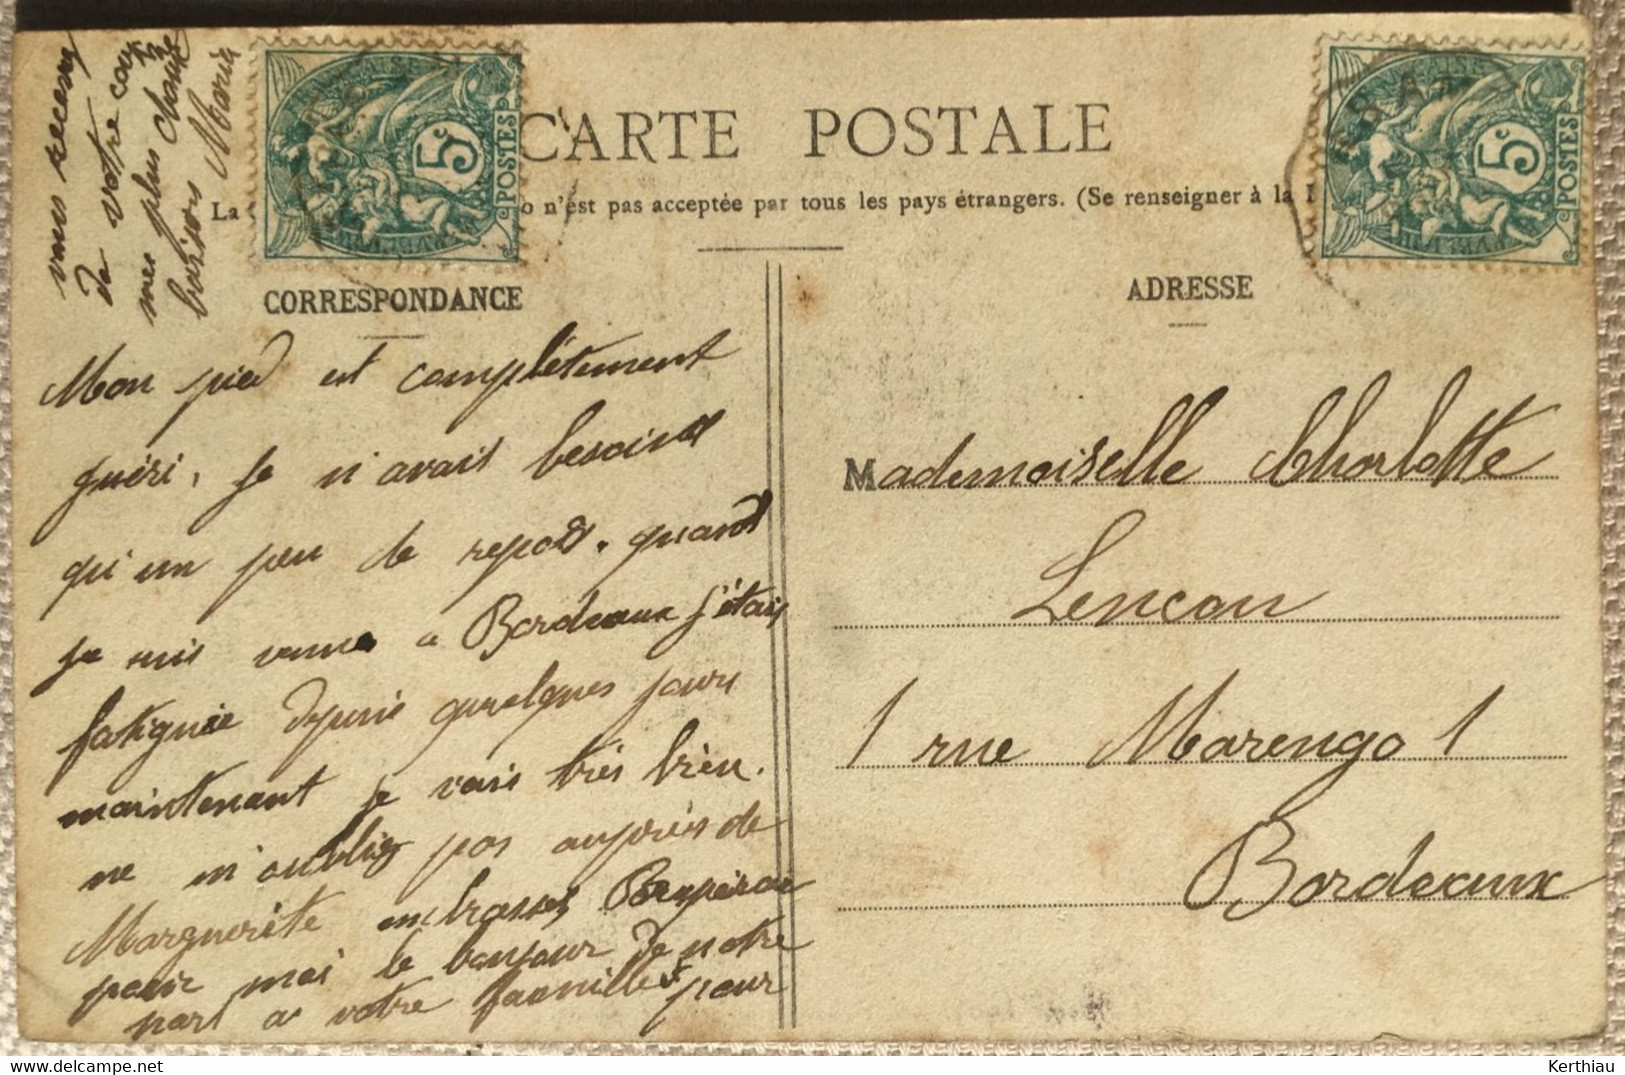 CARTE POSTALE
La o n'est pas acceptée par tous les pays étrangers. (Se renseigner à la
5c POSTES
5c POSTES
CORRESPONDANCE
ADRESSE
Mon pied est complètement
guéri, je n'avais besoin
qu'un peu de repos. quand
je suis venue a Bordeaux j'étais
fatiguée depuis quelques jours
maintenant je vais très bien.
ne m'oubliez pas auprès de
Marguerite embrassez
pour moi le bonjour de notre
part a votre famille pour
vous recevez
de votre
mes plus
baisers Maria
Mademoiselle Charlotte
Lencou
1 rue Marengo 1
Bordeaux
delcampe.net
Kerthiau